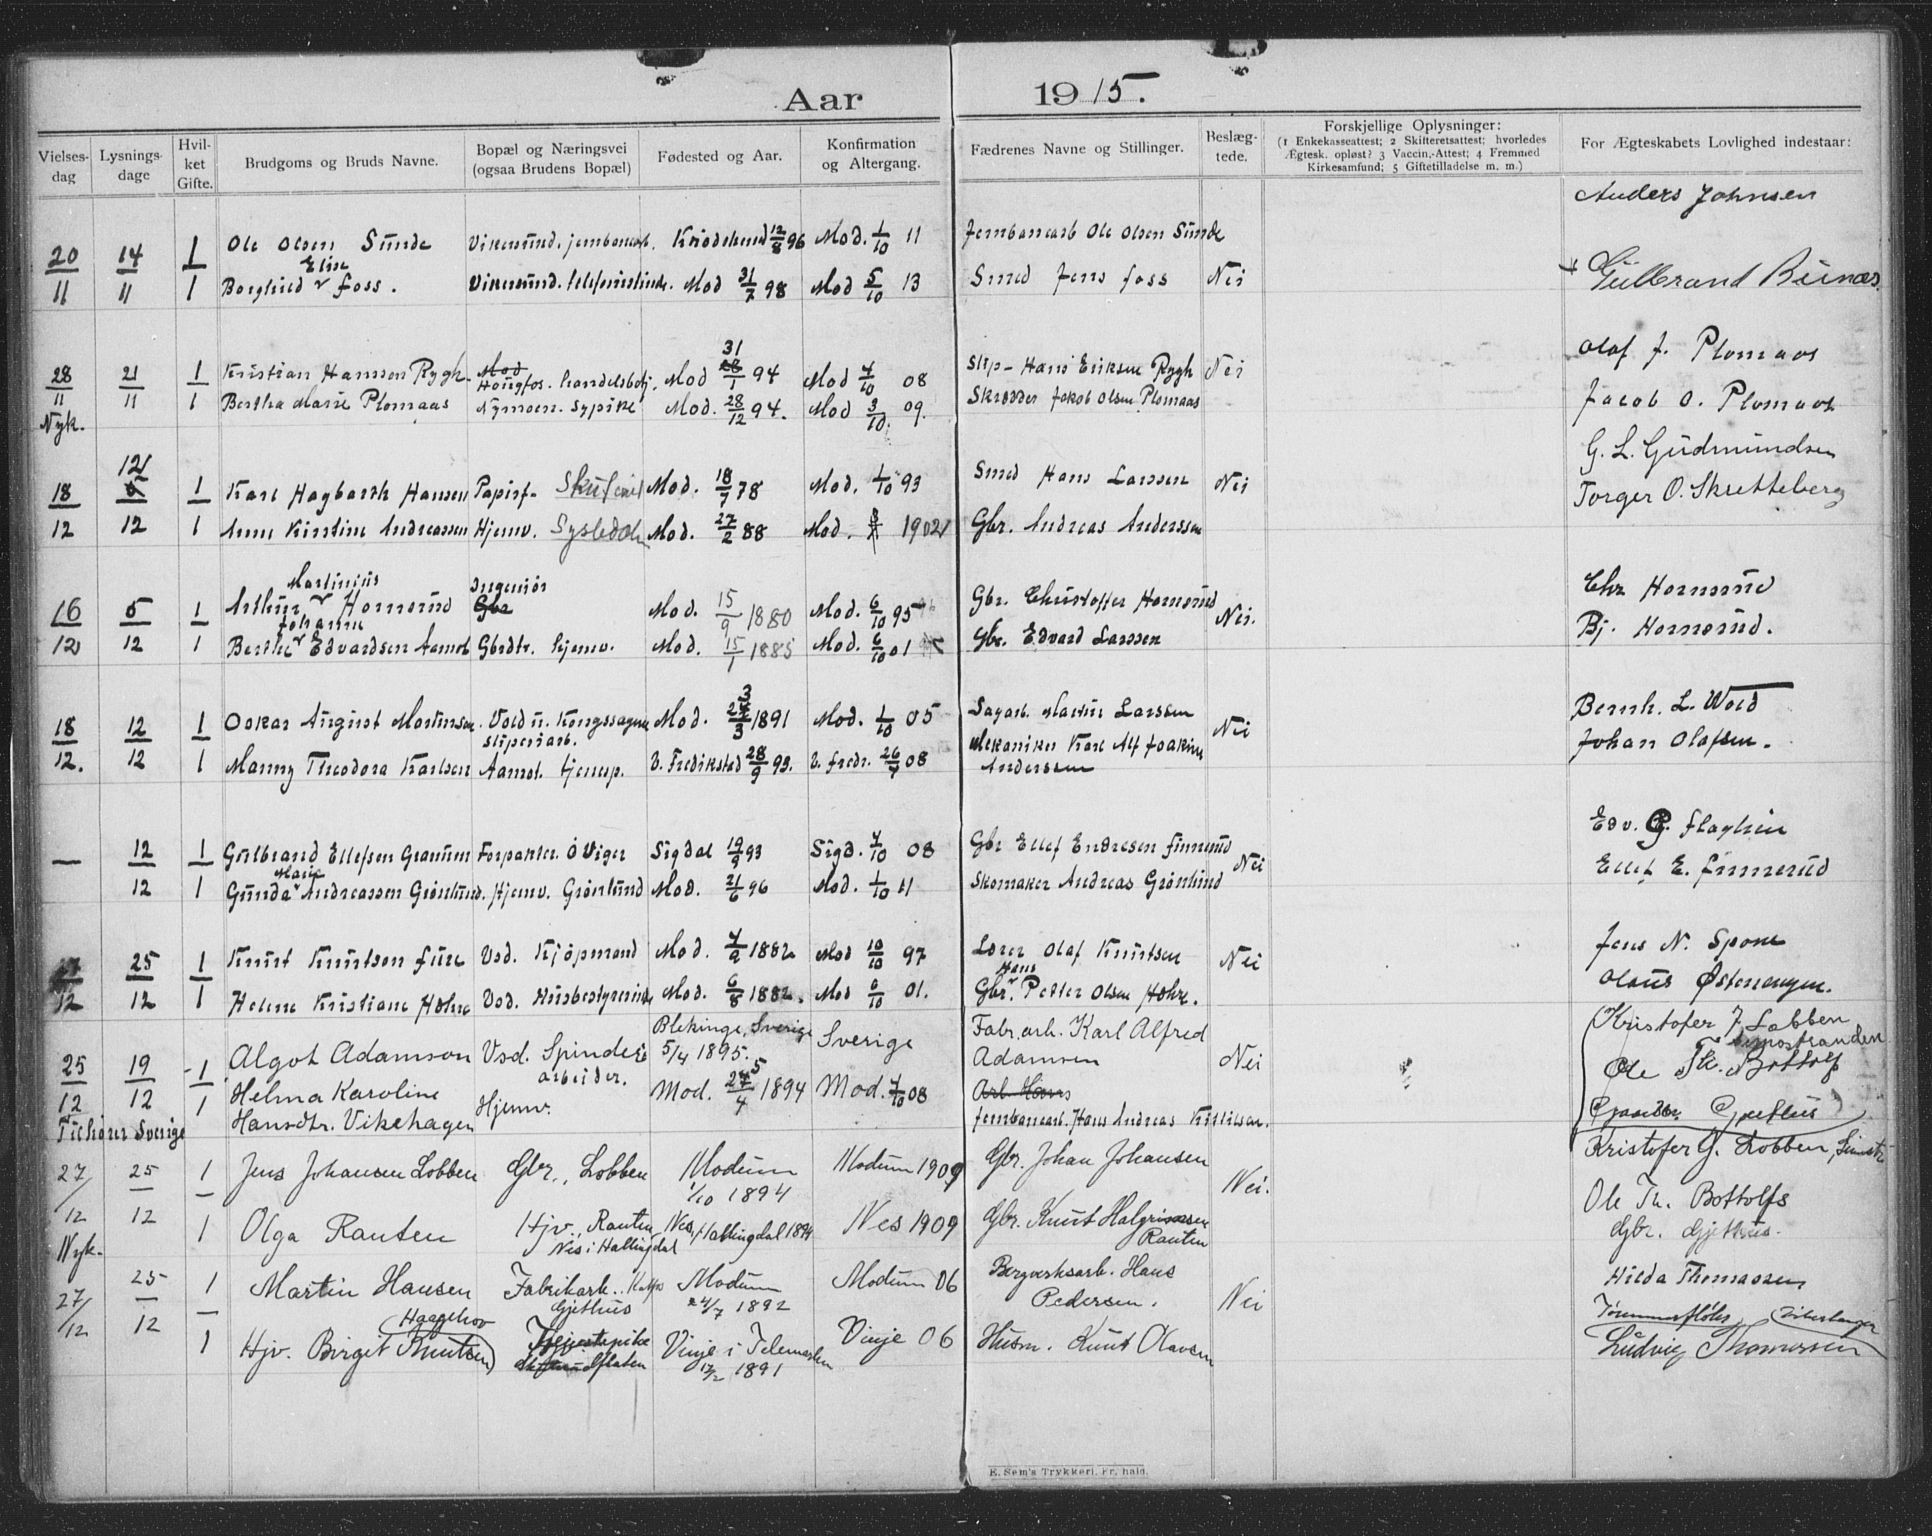 Aar 1915.
Vielses-dag | Lysnings-dage | Hvil-ket Gifte. | Brudgoms og Bruds Navne. | Bopæl og Næringsvei (ogsaa Brudens Bopæl) | Fødested og Aar. | Konfirmation og Altergang. | Fædrenes Navne og Stillinger. | Beslæg-tede. | Forskjellige Oplysninger: (1 Enkekasseattest; 2 Skifteretsattest; hvorledes Ægtesk. opløst? 3 Vaccin.-Attest; 4 Fremmed Kirkesamfund; 5 Giftetilladelse m. m.) | For Ægteskabets Lovlighed indestaar:
Anders Johnsen
20/11 14/11 1 Ole Olsen Sunde Vikesund. jernbanearb. Krødsherad 12/8 96 Mod. 1/10 11 Jernbanearb Ole Olsen Sunde
Elise
1 Borghild Foss. Vikesund. telefonistinde. Mod 31/7 98 Mod 5/10 13 Smed Jens Foss Nei Gulbrand Bunæs.
Olaf J. Plomaas
28/11 21/11 1 Kristian Hansen Rygh. Mod Hougfos. handelsbetj. Mod 31/1 94 Mod 4/10 08 Slip- Hans Eriksen Rygh Nei
Nyk. 1 Bertha Marie Plomaas Nymoen. sypike Mod. 28/12 94. Mod 3/10. 09. Skrædder Jakob Olsen Plomaas Jacob O. Plomaas
G. L. Gudmundsen
18/12 12/12 1 Karl Hagbarth Hansen Papirf- Mod. 18/7 78 Mod. 1/10 93 Smed Hans Larssen Nei Torger O. Skretteberg
1 Anne Kirstine Andreassen Hjemv. Mod. 27/2 88 Mod. 1902 Gbr. Andreas Anderssen
Martinius Ingeniør Chr Hornerud
16/12 5/12 1 Arthur Hornerud Gbr Mod. 15/9 1880 Mod. 6/10 95 Gbr. Christoffer Hornerud Nei.
Johanne
1 Berthe Edvardsen Aamot Gbrdtr. hjemv. Mod. 15/1 1885 Mod. 6/10 01 Gbr. Edvard Larssen Bj. Hornerud.
18/12. 12/12 1 Oskar August Martinsen. Vold u. Kongssagene sliperiarb. Mod. 1891 Mod. 1/10 05 Sagarb. Martin Larssen Nei Bernh. L. Wold
1 Manny Theodora Karlsen Aamot. tjenep. V. Fredrikstad 28/9 93. V. Fredr. 26/4 08 Mekaniker Karl Alf Joakim Anderssen Johan Olafsen.
— 12/12 1 Gulbrand Ellefsen Granum Forpakter. Ö Viger Sigdal 19/9 93 Sigd. 4/10 08 Gbr Ellef Endresen Finnerud Nei Edv. G. Flaglien
Marie
1 Gunda Andreassen Grønlund. Hjemv. Grønlund Mod. 21/6 96 Mod. 1/10 11 Skomaker Andreas Grønlund Ellef E. Finnerud
17/12 25/12 1 Knut Knutsen Fure Vsd. Kjøpmand Mod. 4/2 1882 Mod 10/10 97 Lærer Olaf Knutsen Nei Jens N. Spone
Hans
1 Helene Kristiane Hohre Vsd. Husbestyrerinde Mod. 6/8 1882. Mod 6/10 01. Gbr. Petter Olsen Hohre. Olaus Østenengen.
25/12 19/12 1 Algot Adamson Vsd. Spinderiarbeider. Blekinge, Sverige 5/4 1895. Sverige Fabr.arb. Karl Alfred Adamsen Nei Kristofer J. Lobben
Ole Th. Bottolfs
1 Helma Karoline Hansdtr. Vikehagen Hjemv. Mod. 1894 Mod. 4/10 08 Arb Hans
jernbanearb. Hans Andreas Kittilsen. Gjethus
27/12 25/12 1 Jens Johansen Lobben Gbr., Lobben Modum 1/10 1894 Modum 1909 Gbr. Johan Johansen Nei. Kristofer G. Lobben
Nyk. 1 Olga Rauten Hjv., Rauten Nes i Hallingdal Nes, Hallingdal 1894 Nes 1909 Gbr. Knut Halgrimsen Rauten Ole Th. Bottolfs
Gbr. Gjethus.
27/12 25/12 1 Martin Hansen Fabrikarb. Gjethus Modum 24/7 1892 Modum 06 Bergverksarb. Hans Pedersen. Nei Hilda Thomassen
Haagehov Tømmerfløter
1 Hjv. Birgit Knutsen Vinje i Telemarken 12/2 1891 Vinje 06 Husm. Knut Olavsen Ludvig Thomassen
E. Sem's Trykkeri, Fr. hald.